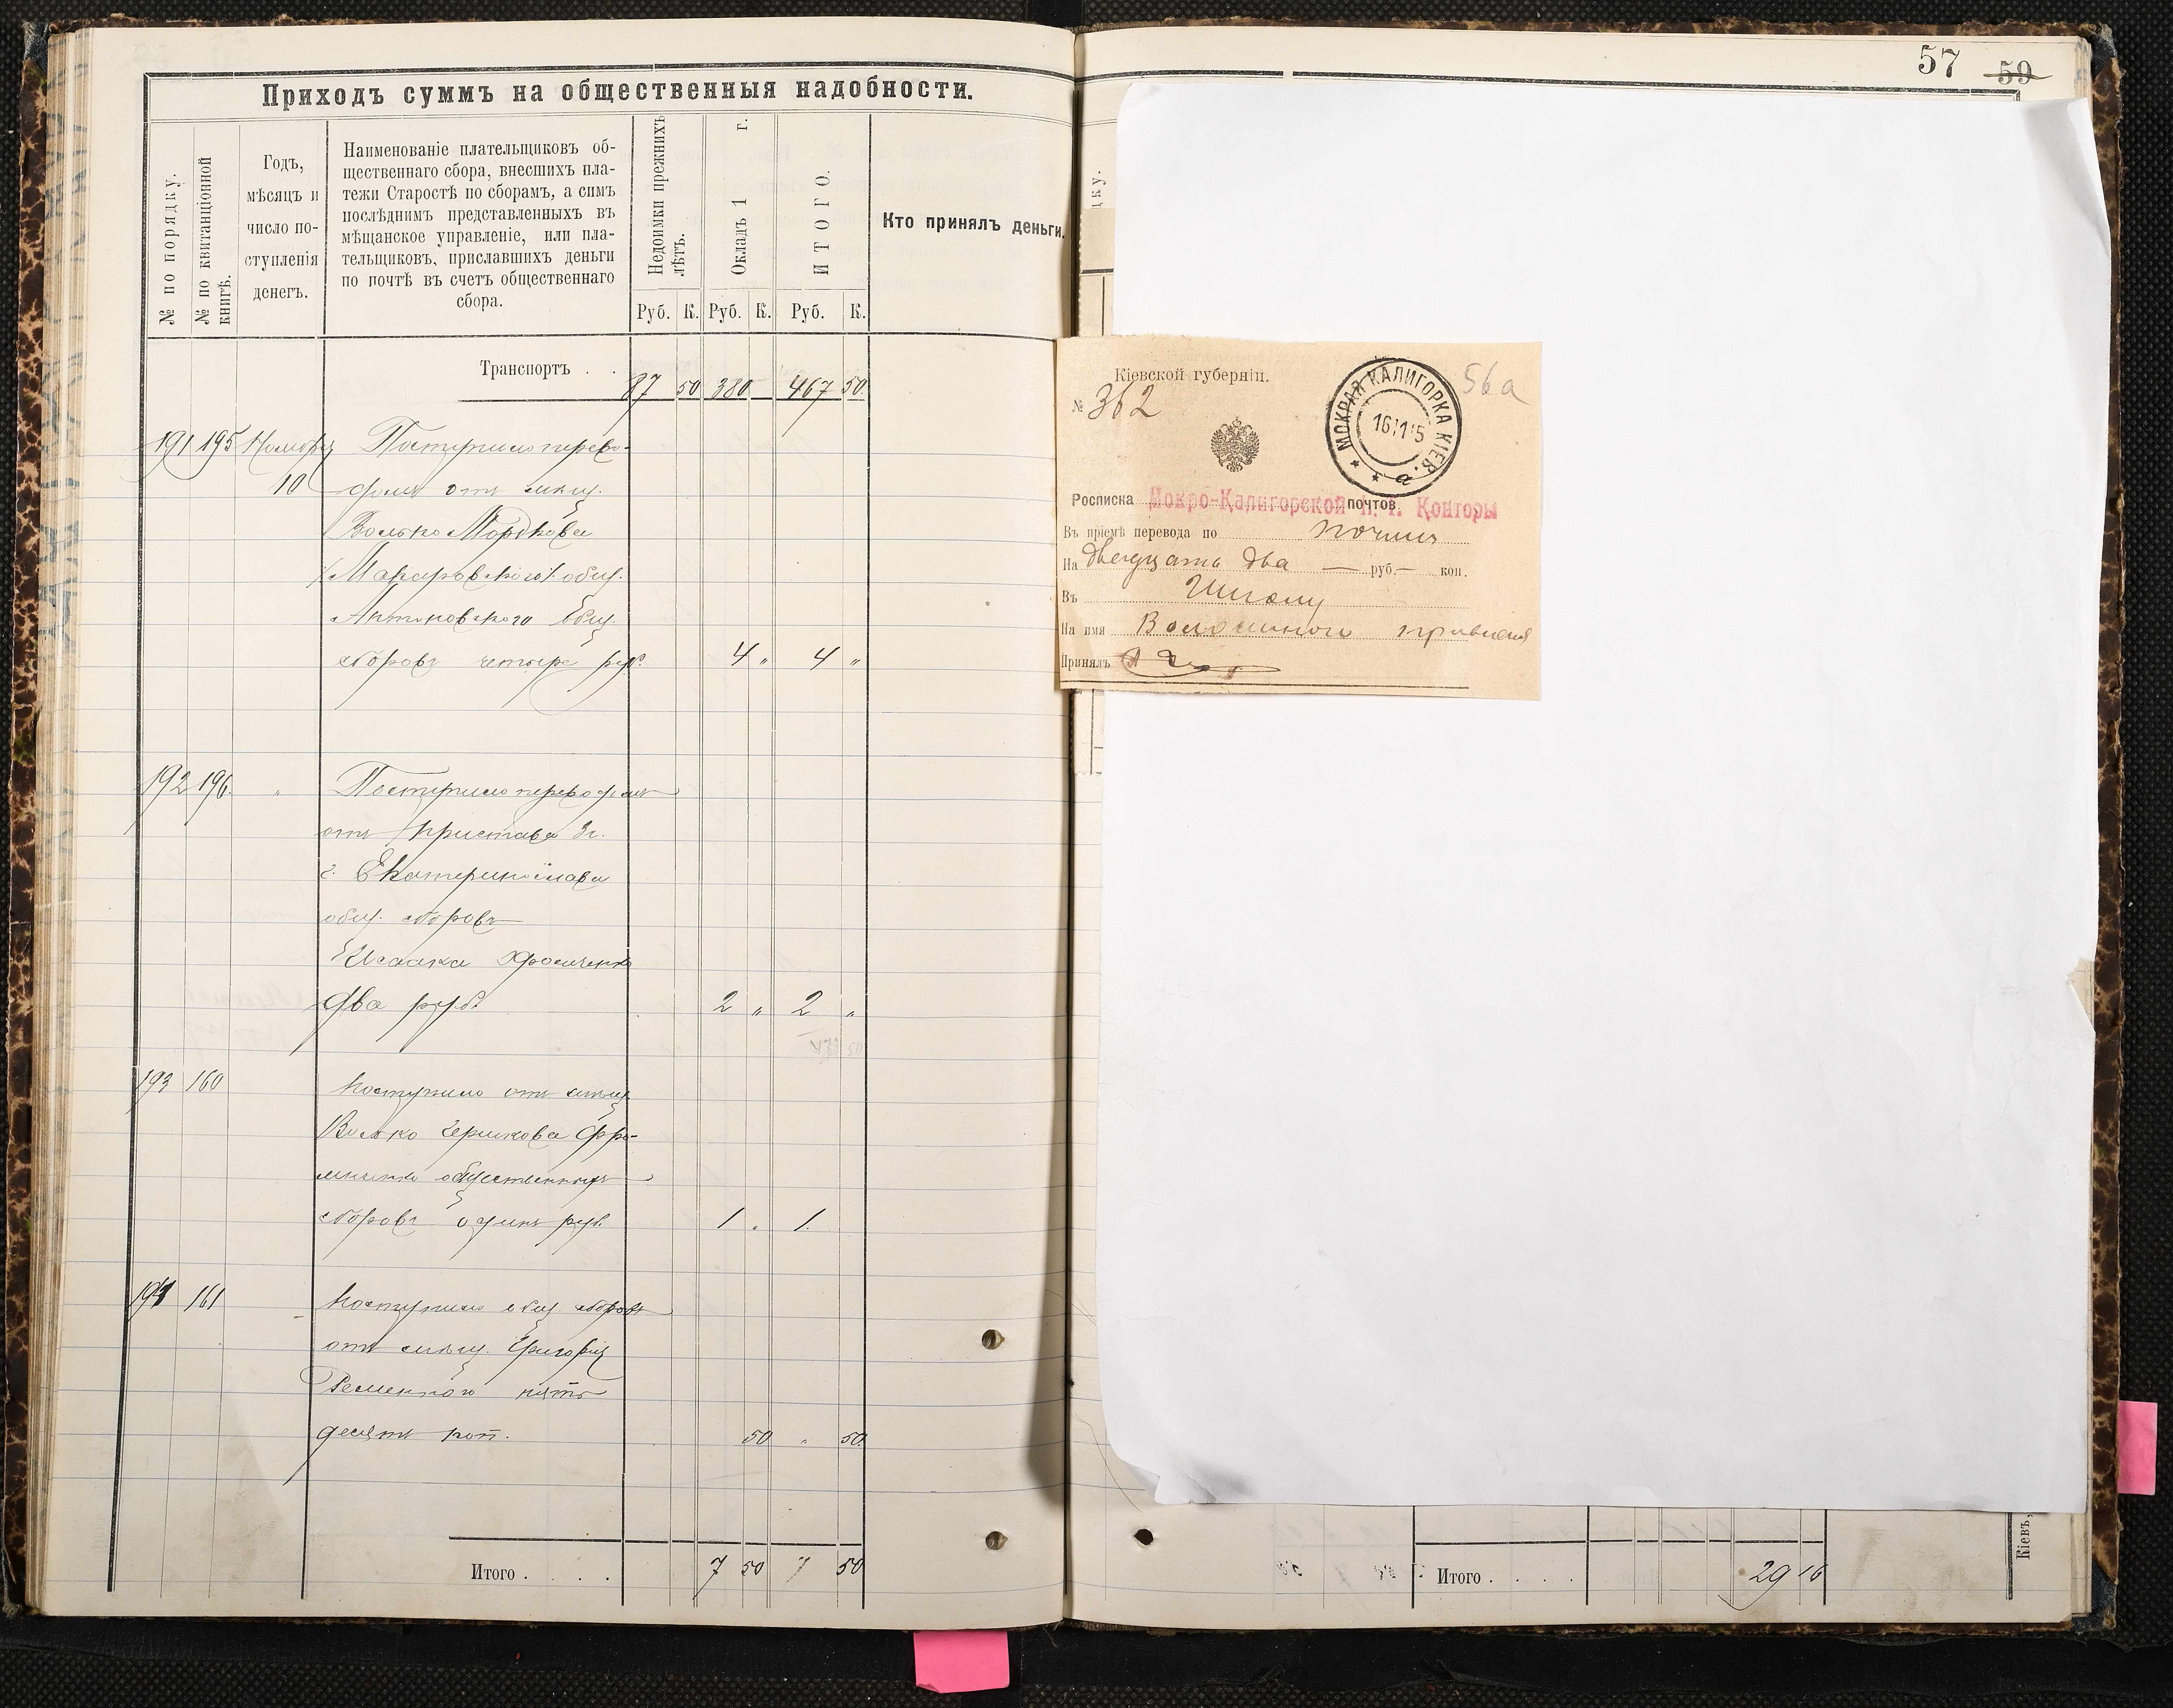 Приходъ суммъ на общественныя надобности.
№ по порядку.
№ по квитанціонной
книгѣ.
Годъ,
мѣсяцъ и
число по-
ступленія
денегъ.
Наименованіе плательщиковъ об-
щественнаго сбора, внесшихъ пла-
тежи Старостѣ по сборамъ, а симъ
послѣднимъ представленныхъ въ
мѣщанское управленіе, или пла-
тельщиковъ, приславшихъ деньги
по почтѣ въ счетъ общественнаго
сбора.
Недоимки прежнихъ
лѣтъ.
Окладъ 1 г.
ИТОГО.
Кто принялъ деньги.
Руб. К. Руб. К. Руб. К.
Транспортъ . . 87 50 380 — 467 50
191 195 Ноября Поступило перево-
10 домъ отъ мѣщ.
Волько Мордкова
общ.
сборовъ четыре руб. 4 „ 4 „
192 196. „ Поступило переводомъ
отъ пристава 3 г.
г. Екатеринослава
общ. сборовъ
Исаака
два руб. 2 „ 2 „
193 160 Поступило отъ мѣщ.
Волько Герикова Фро-
общественныхъ
сборовъ одинъ руб. 1 „ 1.
194 161 Поступило общ. сборовъ
отъ мѣщ. Григорія
пять
десятъ коп. 50 „ 50.
Итого . . . . 7 50 7 50
57 59
дку.
Кіевской губерніи.
56а
№ 362
МОКРАЯ КАЛИГОРКА КІЕВ.
16 11 15
а
Росписка Мокро-Калигорской п. т. Конторы почтов.
Въ пріемѣ перевода по почтѣ
На двадцать два — руб. — коп.
Въ Шполу
На имя Волостного правленія
Принялъ
Итого . . . . 29 16
Кіевъ,